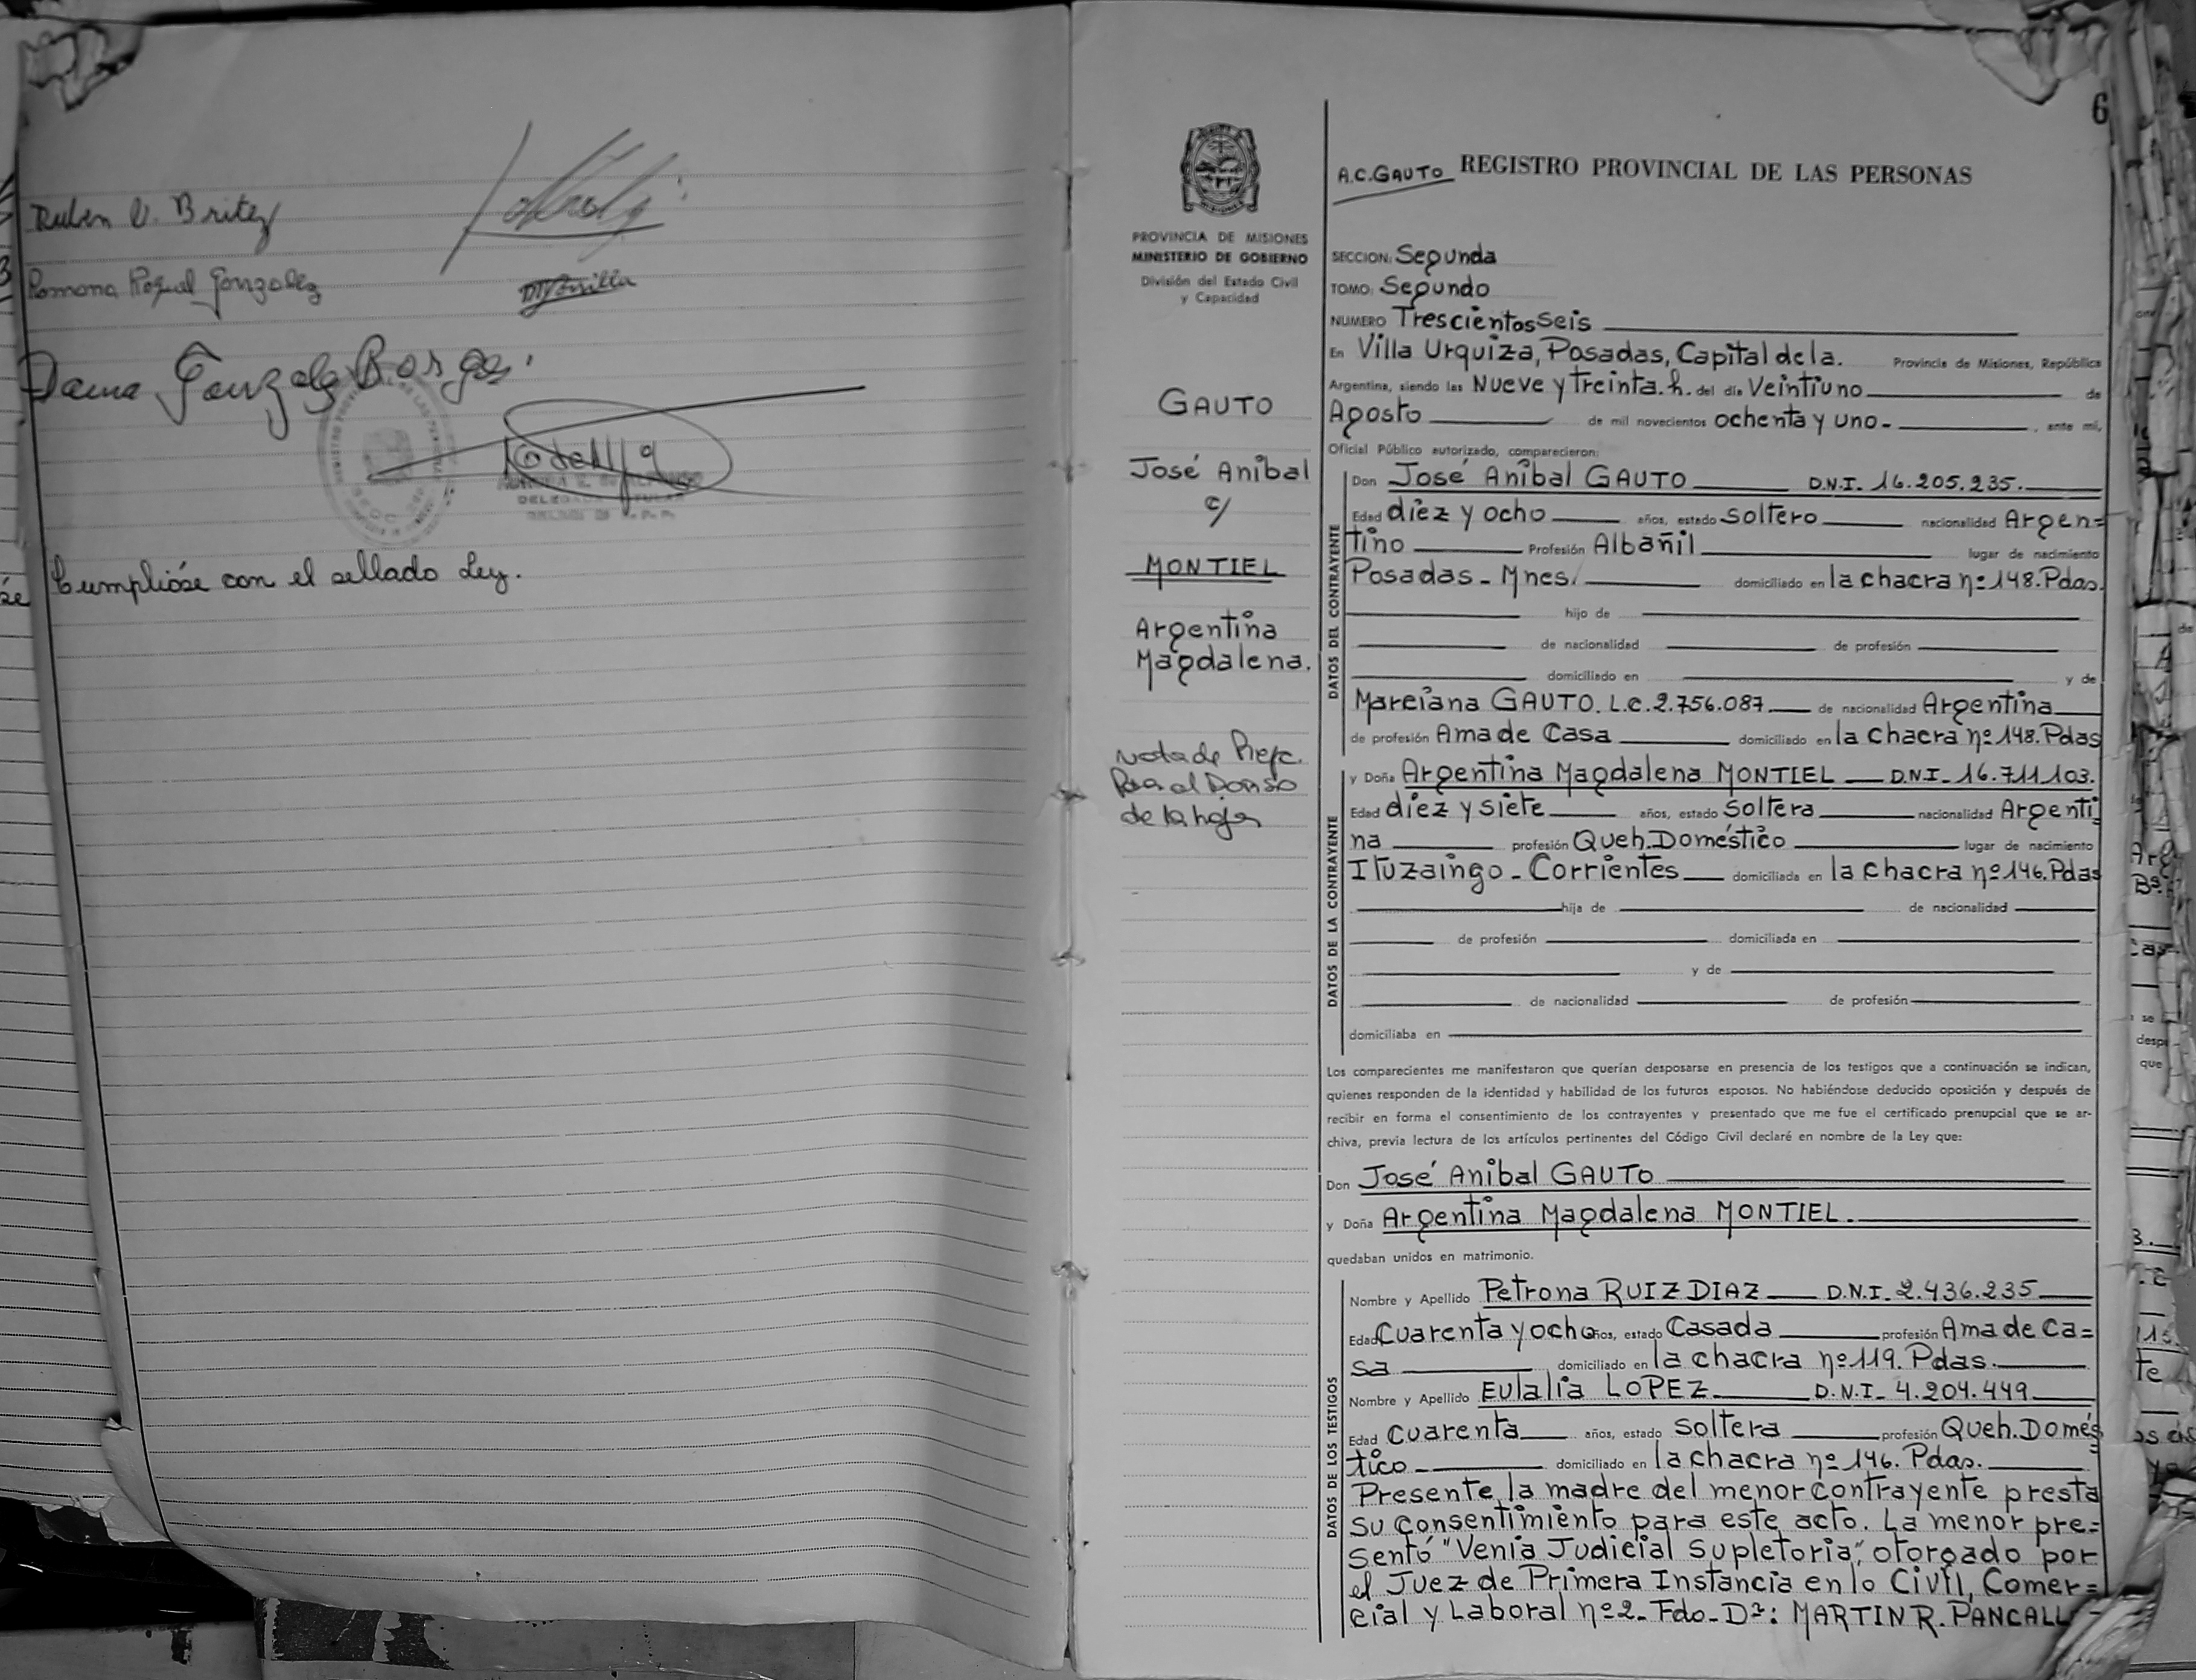 Ruben V. Britez
Ramona Raquel Gonzalez
Cumplióse con el sellado Ley.
6
A.C. GAUTO REGISTRO PROVINCIAL DE LAS PERSONAS
PROVINCIA DE MISIONES
MINISTERIO DE GOBIERNO
División del Estado Civil
y Capacidad
GAUTO
José Anibal
c/
MONTIEL
Argentina
Magdalena.
nota de
de la hoja
SECCION: Segunda
TOMO: Segundo
NUMERO Trescientos Seis
En Villa Urquiza, Posadas, Capital de la. Provincia de Misiones, República
Argentina, siendo las Nueve y treinta. h. del día Veintiuno de
Agosto de mil novecientos ochenta y uno - , ante mí,
Oficial Público autorizado, comparecieron:
DATOS DEL CONTRAYENTE
Don José Anibal GAUTO D.N.I. 16.205.235.
Edad diez y ocho años, estado Soltero nacionalidad Argen=
tino Profesión Albañil lugar de nacimiento
Posadas - Mnes. domiciliado en la chacra nº 148. Pdas.
hijo de
de nacionalidad de profesión
domiciliado en y de
Marciana GAUTO. L.C. 2.756.087 de nacionalidad Argentina
de profesión Ama de Casa domiciliado en la Chacra nº 148. Pdas
DATOS DE LA CONTRAYENTE
y Doña Argentina Magdalena MONTIEL D.N.I- 16.711.103.
Edad diez y siete años, estado Soltera nacionalidad Argenti
na profesión Queh. Doméstico lugar de nacimiento
Ituzaingo - Corrientes domiciliada en la chacra nº 146. Pdas
hija de de nacionalidad
de profesión domiciliada en
y de
de nacionalidad de profesión
domiciliaba en
Los comparecientes me manifestaron que querían desposarse en presencia de los testigos que a continuación se indican,
quienes responden de la identidad y habilidad de los futuros esposos. No habiéndose deducido oposición y después de
recibir en forma el consentimiento de los contrayentes y presentado que me fue el certificado prenupcial que se ar-
chiva, previa lectura de los artículos pertinentes del Código Civil declaré en nombre de la Ley que:
Don José Anibal GAUTO
y Doña Argentina Magdalena MONTIEL.
quedaban unidos en matrimonio.
DATOS DE LOS TESTIGOS
Nombre y Apellido Petrona RUIZ DIAZ D.N.I- 2.436.235
Edad Cuarenta y ocho años, estado Casada profesión Ama de Ca=
sa domiciliado en la chacra nº 119. Pdas.
Nombre y Apellido Eulalia LOPEZ D.N.I- 4.204.449
Edad Cuarenta años, estado soltera profesión Queh. Domés
tico - domiciliado en la chacra nº 146. Pdas.
Presente la madre del menor contrayente presta
su consentimiento para este acto. La menor pre=
sentó "Venia Judicial Supletoria", otorgado por
el Juez de Primera Instancia en lo Civil, Comer=
cial y Laboral nº 2- Fdo- Dr: MARTIN R. PANCALL